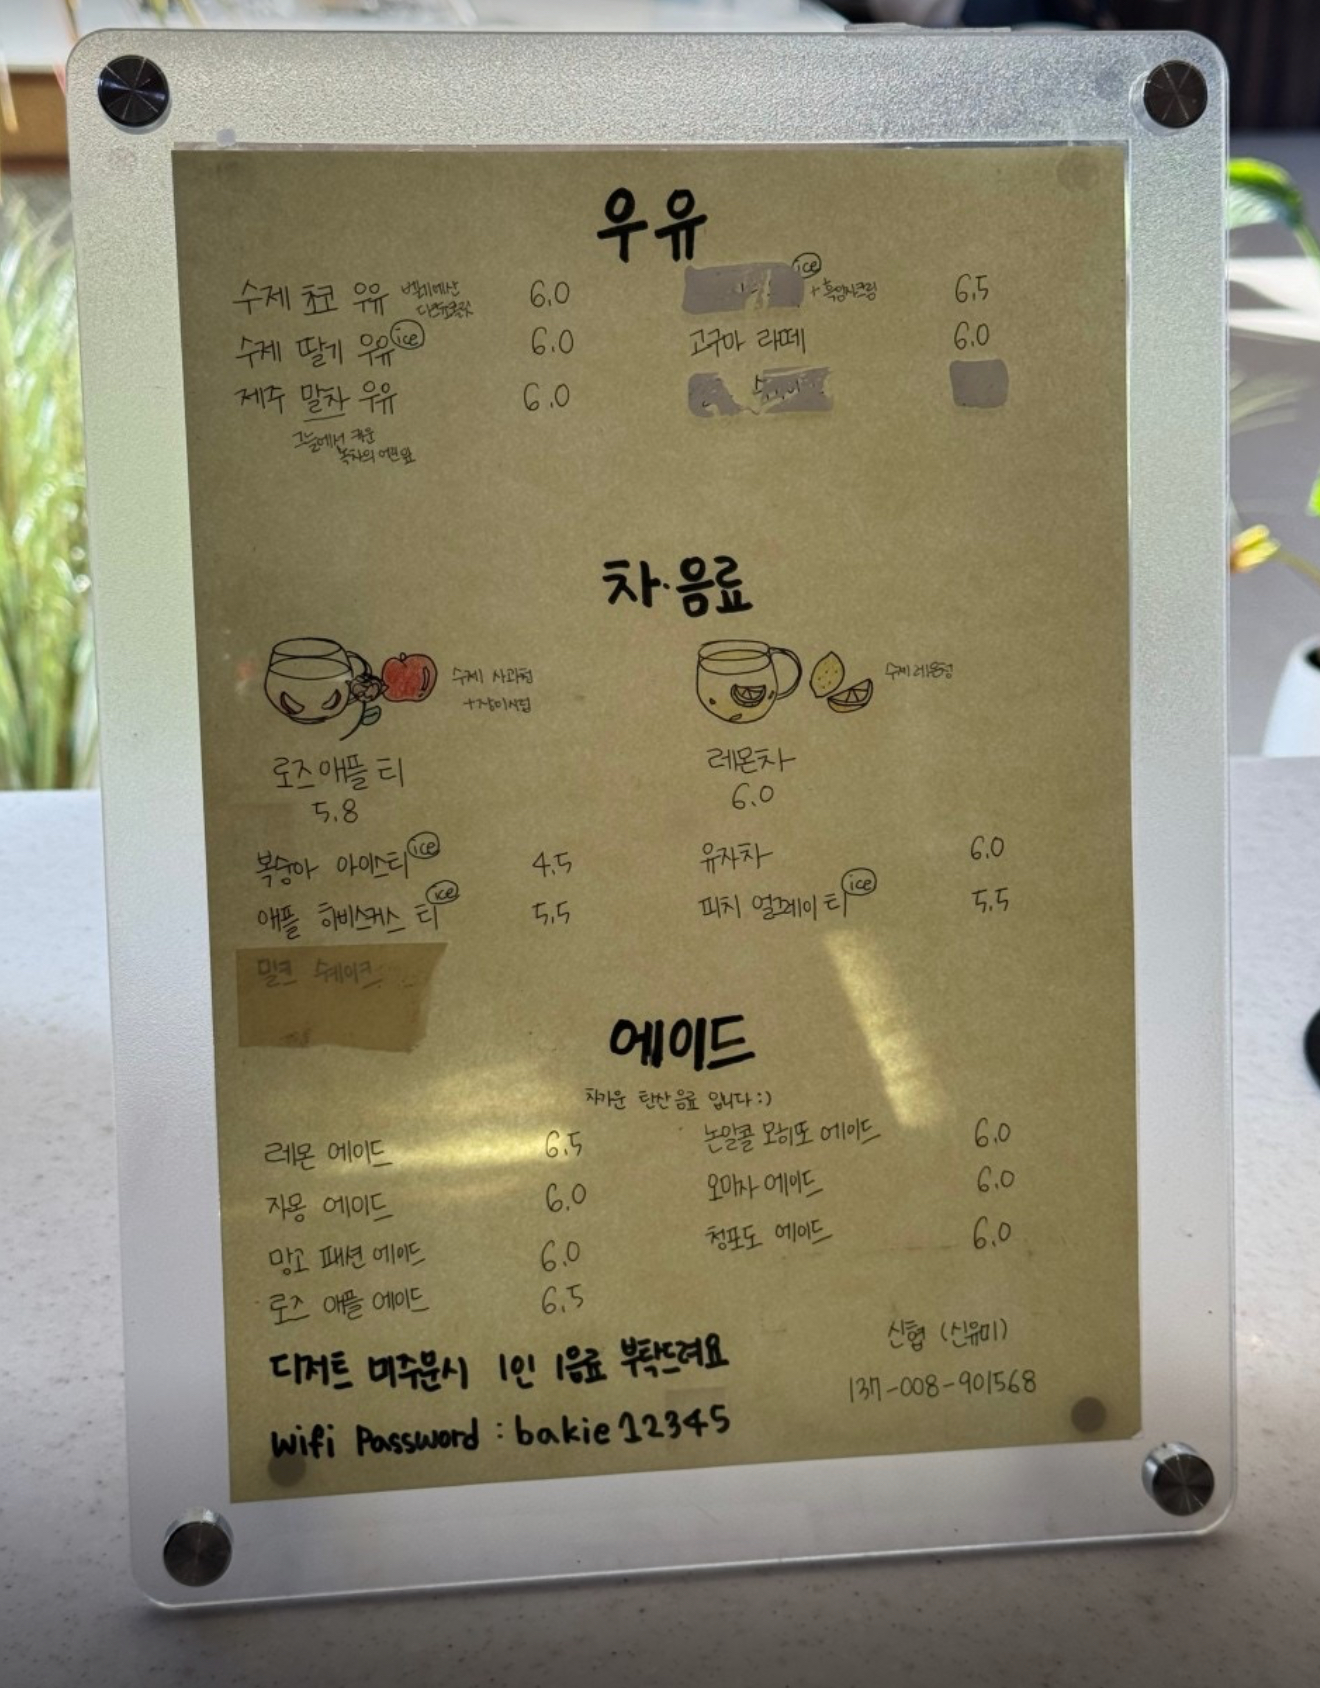 우유
수제 초코 우유 벨기에산 6.0
수제 딸기 우유 ice 6.0
제주 말차 우유 6.0
그늘에서 키운
녹차의 어린잎
ice + 흑임자크림 6.5
고구마 라떼 6.0
차·음료
수제 사과청
+장미시럽
로즈애플 티
5.8
수제 레몬청
레몬차
6.0
복숭아 아이스티 ice 4.5
애플 히비스커스 티 ice 5.5
밀크 쉐이크
유자차 6.0
피치 얼그레이 티 ice 5.5
에이드
차가운 탄산음료 입니다 :)
레몬 에이드 6.5
자몽 에이드 6.0
망고 패션 에이드 6.0
로즈 애플 에이드 6.5
논알콜 모히또 에이드 6.0
오미자 에이드 6.0
청포도 에이드 6.0
디저트 미주문시 1인 1음료 부탁드려요
Wifi Password : bakie12345
신협 (신유미)
137-008-901568